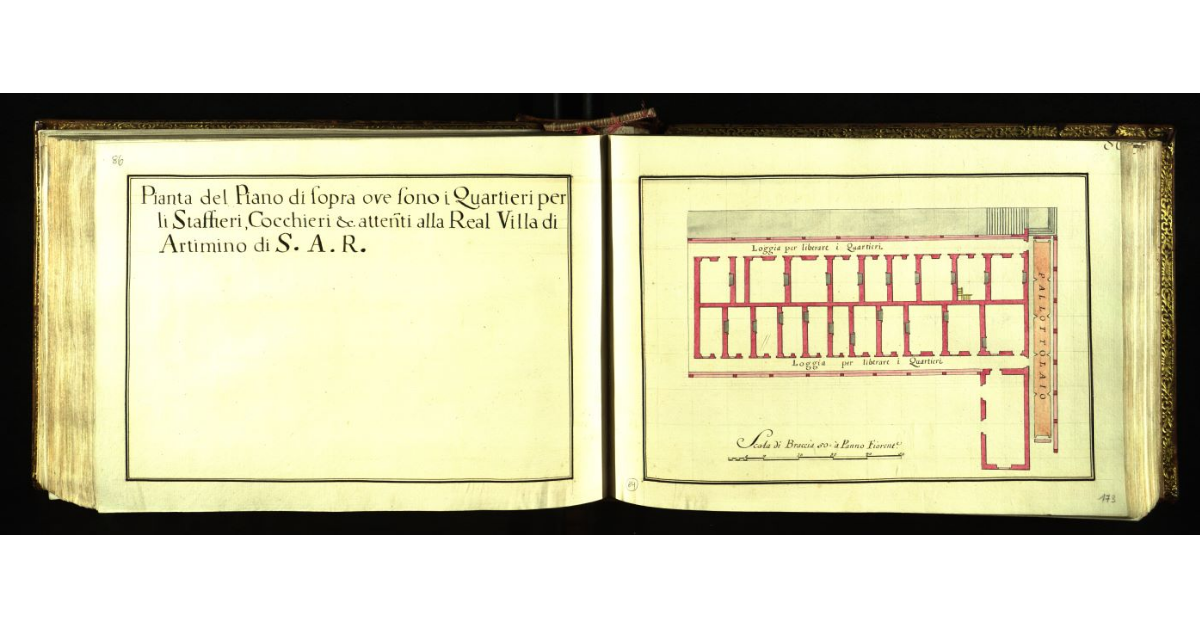 86
Pianta del Piano di ſopra ove ſono i Quartieri per
li Staffieri, Cocchieri &c. atteñti alla Real Villa di
Artimino di S. A. R.
Loggia per liberare i Quartieri.
PALLOTTOLAIO
Loggia per liberare i Quartieri.
Scala di Braccia 50. a Panno Fiorent.
173